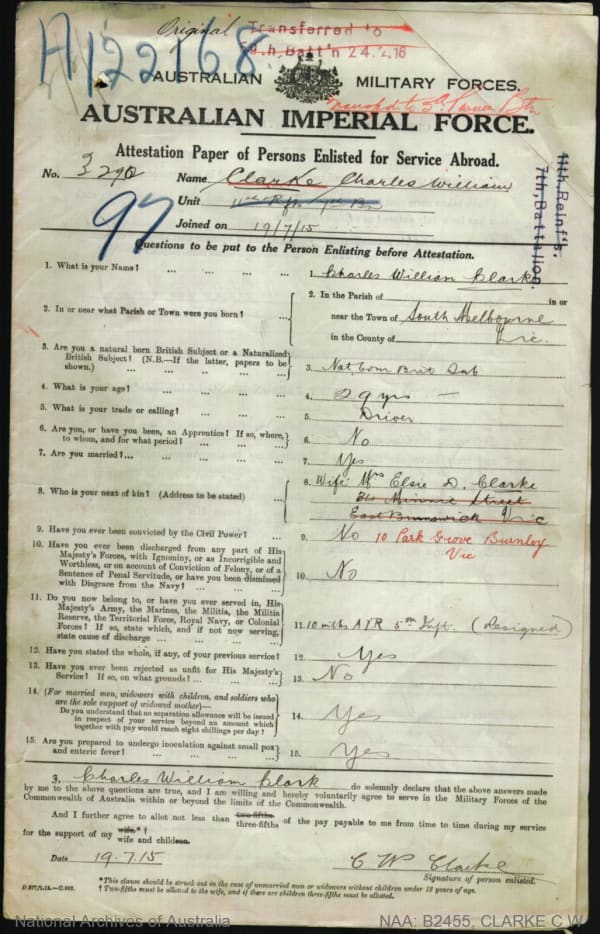 Original
Transferred to
Batt'n 24.2.16
A122168
AUSTRALIAN MILITARY FORCES.
AUSTRALIAN IMPERIAL FORCE.
Attestation Paper of Persons Enlisted for Service Abroad.
No. 3290 Name Clarke Charles William
Unit
Joined on 19/7/15
11th, Reinf's.
7th, Battalion.
97
Questions to be put to the Person Enlisting before Attestation.
1. What is your Name? ... ... ... ... 1. Charles William Clarke
2. In or near what Parish or Town were you born? ... 2. In the Parish of in or
near the Town of South Melbourne
in the County of Vic.
3. Are you a natural born British Subject or a Naturalized
British Subject? (N.B.—If the latter, papers to be
shown.) ... ... ... ... 3. Nat born Brit Sub
4. What is your age? ... ... ... ... 4. 29 yrs —
5. What is your trade or calling? ... ... ... 5. Driver
6. Are you, or have you been, an Apprentice? If so, where,
to whom, and for what period? ... ... ... 6. No
7. Are you married?... ... ... ... ... 7. Yes
8. Who is your next of kin? (Address to be stated) ... 8. Wife Mrs Elsie D. Clarke
34 Minnie Street
East Brunswick Vic
10 Park Grove Burnley
Vic
9. Have you ever been convicted by the Civil Power? ... 9. No
10. Have you ever been discharged from any part of His
Majesty's Forces, with Ignominy, or as Incorrigible and
Worthless, or on account of Conviction of Felony, or of a
Sentence of Penal Servitude, or have you been dismissed
with Disgrace from the Navy? ... ... ... 10. No
11. Do you now belong to, or have you ever served in, His
Majesty's Army, the Marines, the Militia, the Militia
Reserve, the Territorial Force, Royal Navy, or Colonial
Forces? If so, state which, and if not now serving,
state cause of discharge ... ... ... 11. 10 mths AIR 5th Inft. (Resigned)
12. Have you stated the whole, if any, of your previous service? 12. Yes
13. Have you ever been rejected as unfit for His Majesty's
Service? If so, on what grounds?... ... ... 13. No
14. (For married men, widowers with children, and soldiers who
are the sole support of widowed mother)—
Do you understand that no separation allowance will be issued
in respect of your service beyond an amount which
together with pay would reach eight shillings per day? 14. Yes
15. Are you prepared to undergo inoculation against small pox
and enteric fever? ... ... ... ... 15. Yes
I, Charles William Clark do solemnly declare that the above answers made
by me to the above questions are true, and I am willing and hereby voluntarily agree to serve in the Military Forces of the
Commonwealth of Australia within or beyond the limits of the Commonwealth.
And I further agree to allot not less than two-fifths
three-fifths of the pay payable to me from time to time during my service
for the support of my wife.* †
wife and children.
Date 19.7.15 C W Clarke
Signature of person enlisted.
*This clause should be struck out in the case of unmarried men or widowers without children under 18 years of age.
† Two-fifths must be allotted to the wife, and if there are children three-fifths must be allotted.
National Archives of Australia NAA: B2455, CLARKE C W